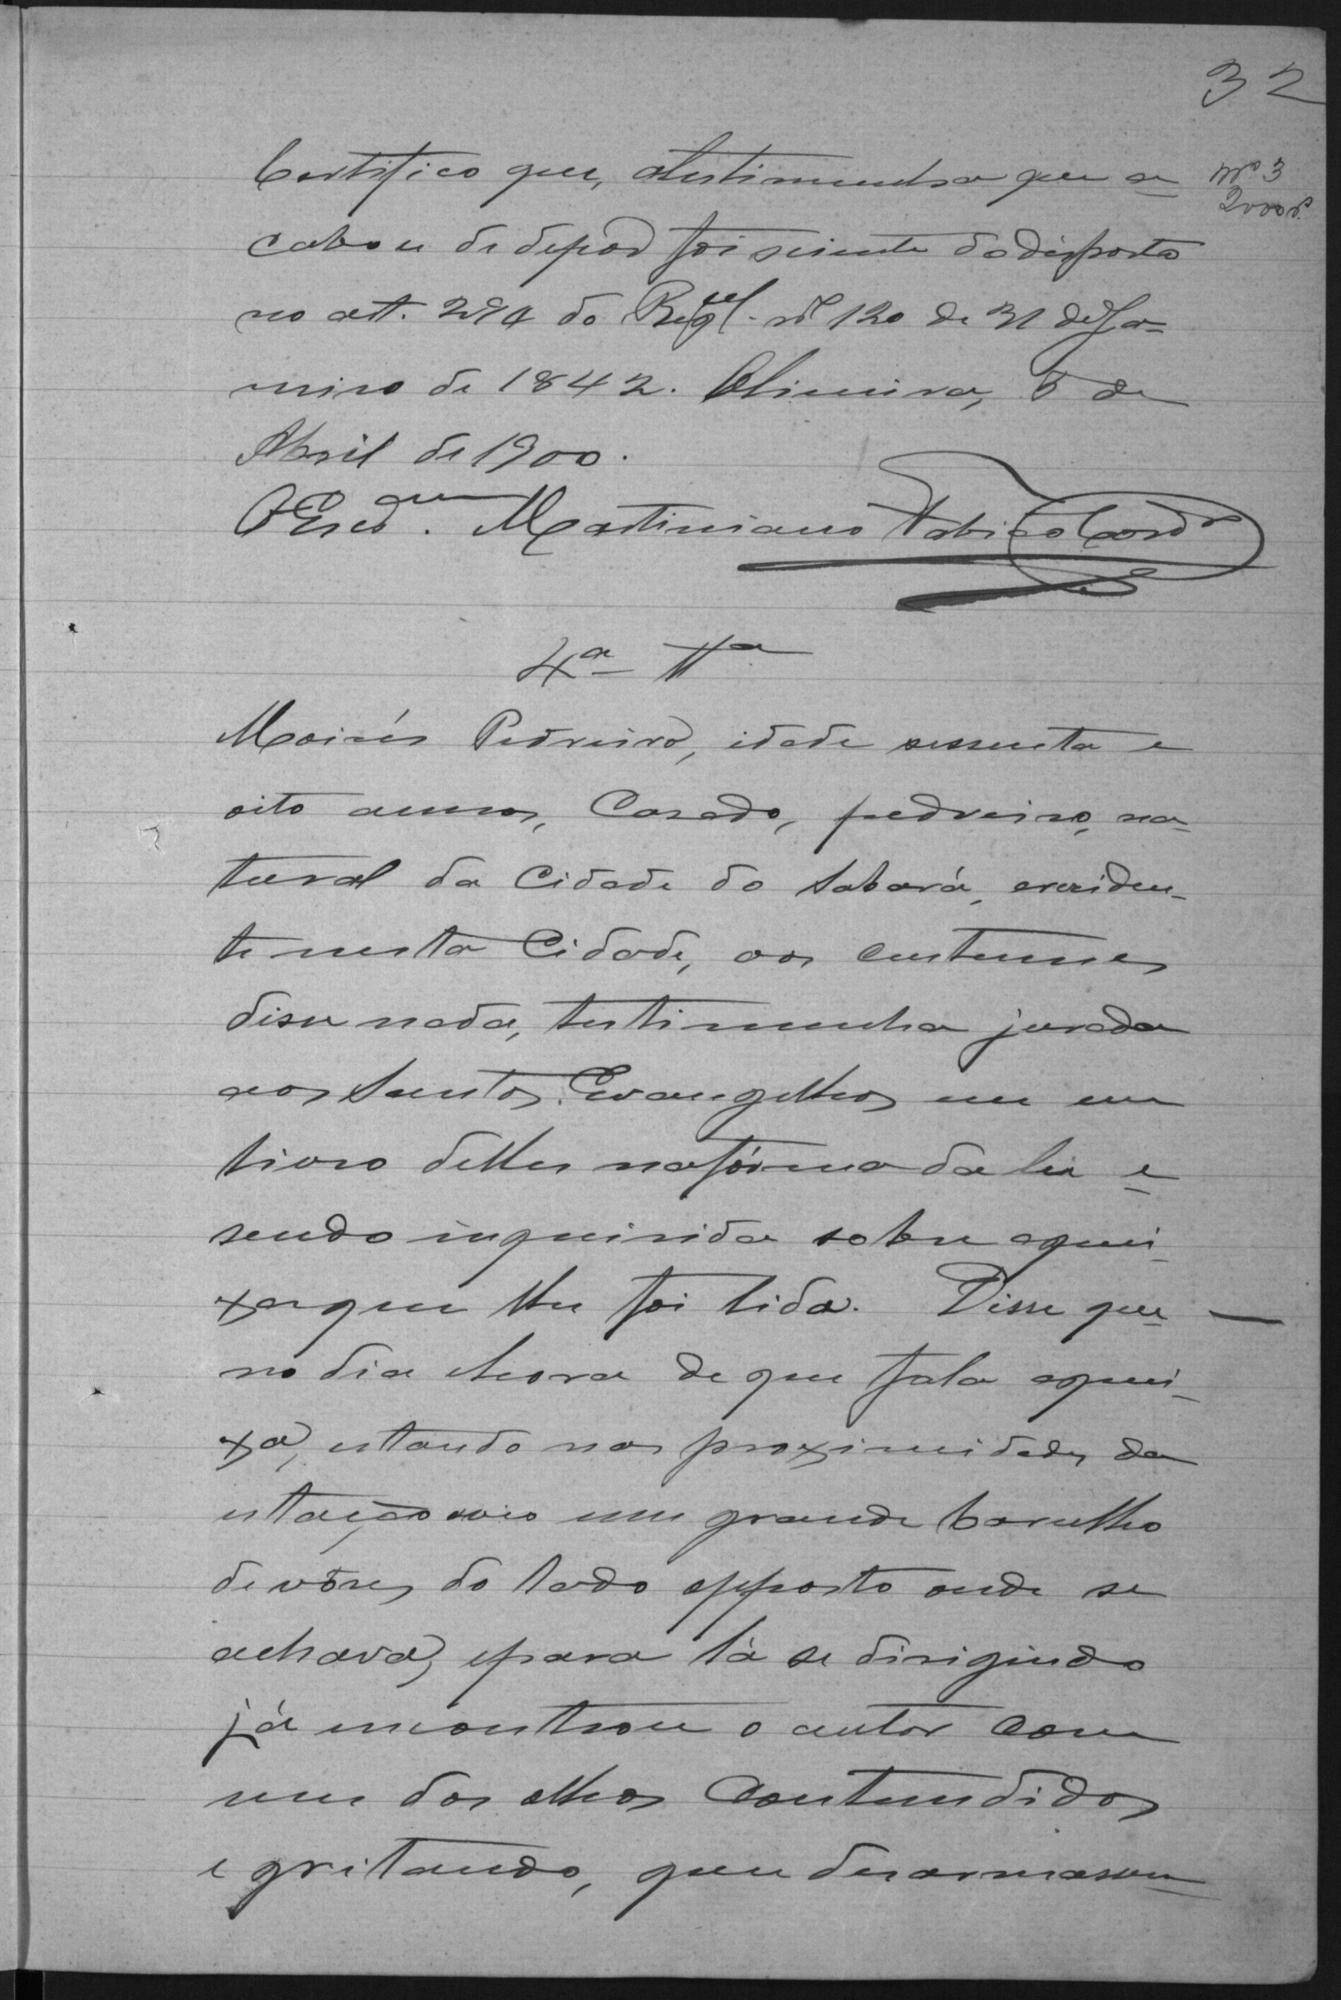 32
Nº 3
2000 rs.
Certifico que, atestimunha que a-
cabou de depôr foi sciente do disposto
no art. 294 do Regul. nº 120 de 31 de Ja-
neiro de 1842. Oliveira, 5 de
Abril de 1900.
O Escrᵃᵐ. Martiniano Fabi Card
4ª Tª
Moisés Pedreiro, idade sessenta e
oito annos, Casado, pedreiro, na-
tural da Cidade do Sabará, eresiden-
te nesta Cidade, aos custumes
disse nada, testimunha jurada
aos Santos Evangelhos em um
livro delles nafórma da lei e
sendo inquirida sobre aquei-
xa que lhe foi lida. Disse que
no dia ehora de que fala aquei-
xa, estando nas proximidades da
estação ouvio um grande barulho
devózes do lado opposto onde se
achava, epara lá se dirigindo
já encontrou o autor com
um dos olhos Contundidos
e gritando, que desarmassem